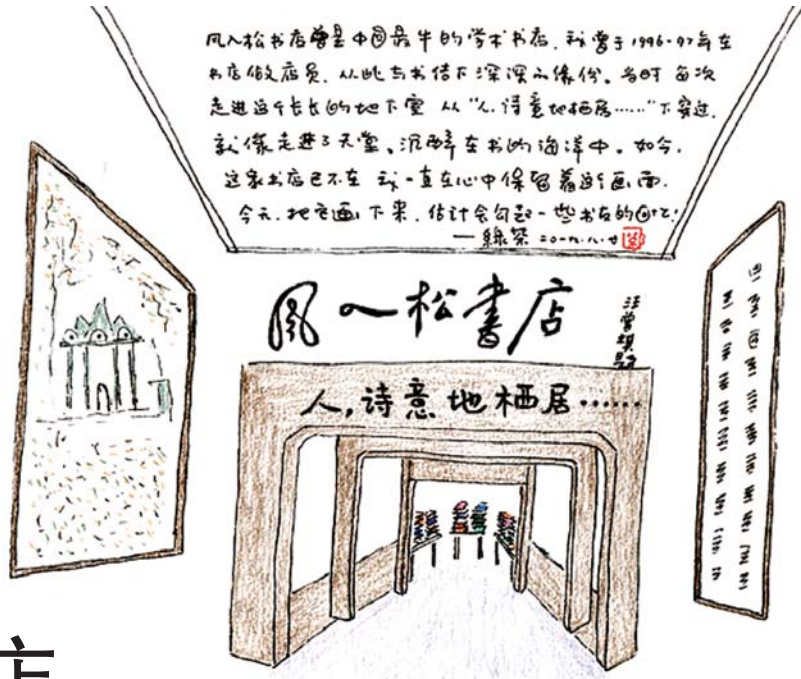 风入松书店曾是中国最牛的学术书店，我曾于1996-97年在
书店做店员，从此与书结下深深的缘份。当时每次
走进这个长长的地下室 从“人，诗意地栖居……”下穿过，
就像走进了天堂、沉醉在书的海洋中。如今，
这家书店已不在 我一直在心中保留着这个画面。
今天，把它画下来，估计会勾起一些书友的回忆！
— 绿茶
风入松书店
汪曾祺题
人，诗意地栖居……